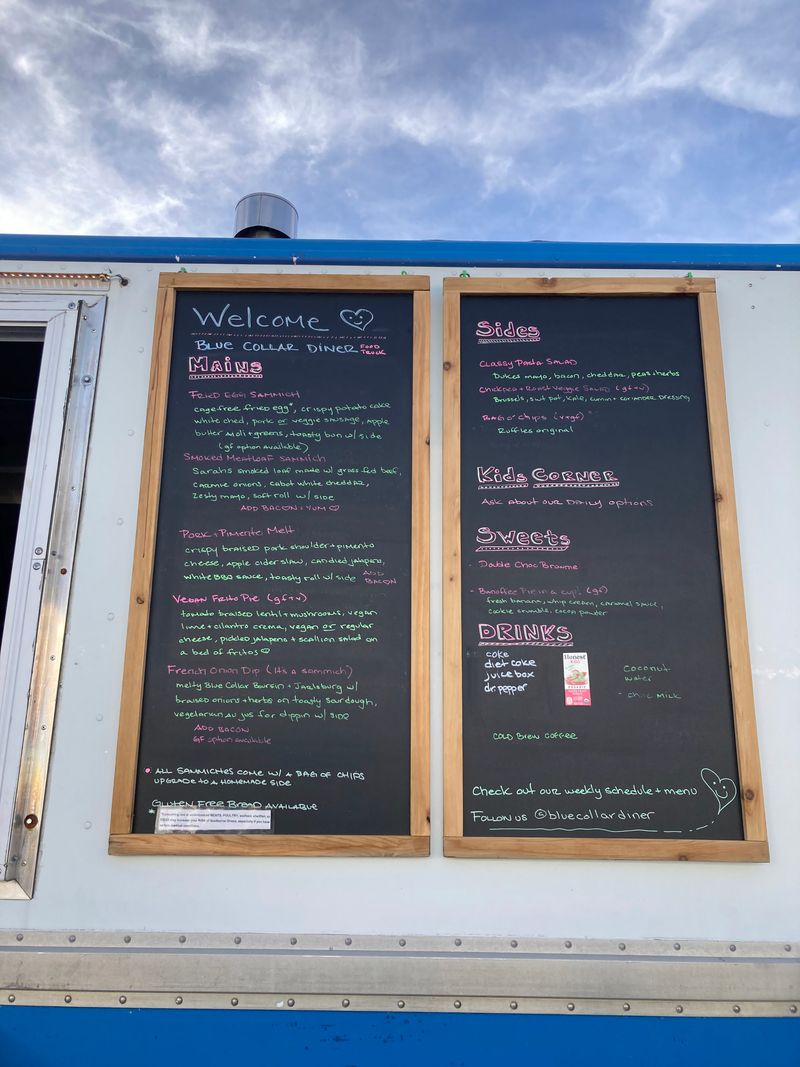 Welcome
BLUE COLLAR DINER FOOD TRUCK
Mains
FRIED EGG SAMMICH
cage free fried egg*, crispy potato cake
white ched, pork or veggie sausage, apple
butter aioli + greens, toasty bun w/ side
(gf option available)
SMOKED MEATLOAF SAMMICH
Sarahs smoked loaf made w/ grass fed beef,
caramie onions, cabot white cheddar,
zesty mayo, soft roll w/ side
ADD BACON = YUM
PORK + Pimento Melt
crispy braised pork shoulder + pimento
cheese, apple cider slaw, candied jalapeno,
white BBQ sauce, toasty roll w/ side ADD
BACON
VEGAN Frito Pie (gf+v)
tomato braised lentil + mushrooms, vegan
lime + cilantro crema, vegan or regular
cheese, pickled jalapeno + scallion salad on
a bed of fritos
French Onion Dip (It's a sammich)
melty Blue Collar Boursin + Jarlsburg w/
braised onions + herbs on toasty sourdough,
vegetarian au jus for dippin w/ side
ADD BACON
GF option available
• ALL SAMMICHES COME W/ A BAG OF CHIPS
UPGRADE TO A HOMEMADE SIDE
GLUTEN FREE BREAD AVAILABLE
Sides
CLASSY PASTA SALAD
Dukes mayo, bacon, cheddar, peas + herbs
Chickpea + Roast Veggie Salad (gf+v)
Brussels, swt pot, kale, cumin + coriander dressing
BAG O' Chips (v+gf)
Ruffles original
Kids Corner
Ask about our daily options
Sweets
- Double Choc Brownie
- Banoffee Pie in a cup! (gf)
fresh banana, whip cream, caramel sauce,
cookie crumble, cocoa powder
DRINKS
coke
diet coke
juice box
dr. pepper
Honest
KIDS
ORGANIC
Coconut
water
- choc milk
COLD BREW COFFEE
Check out our weekly schedule + menu
Follow us @bluecollardiner